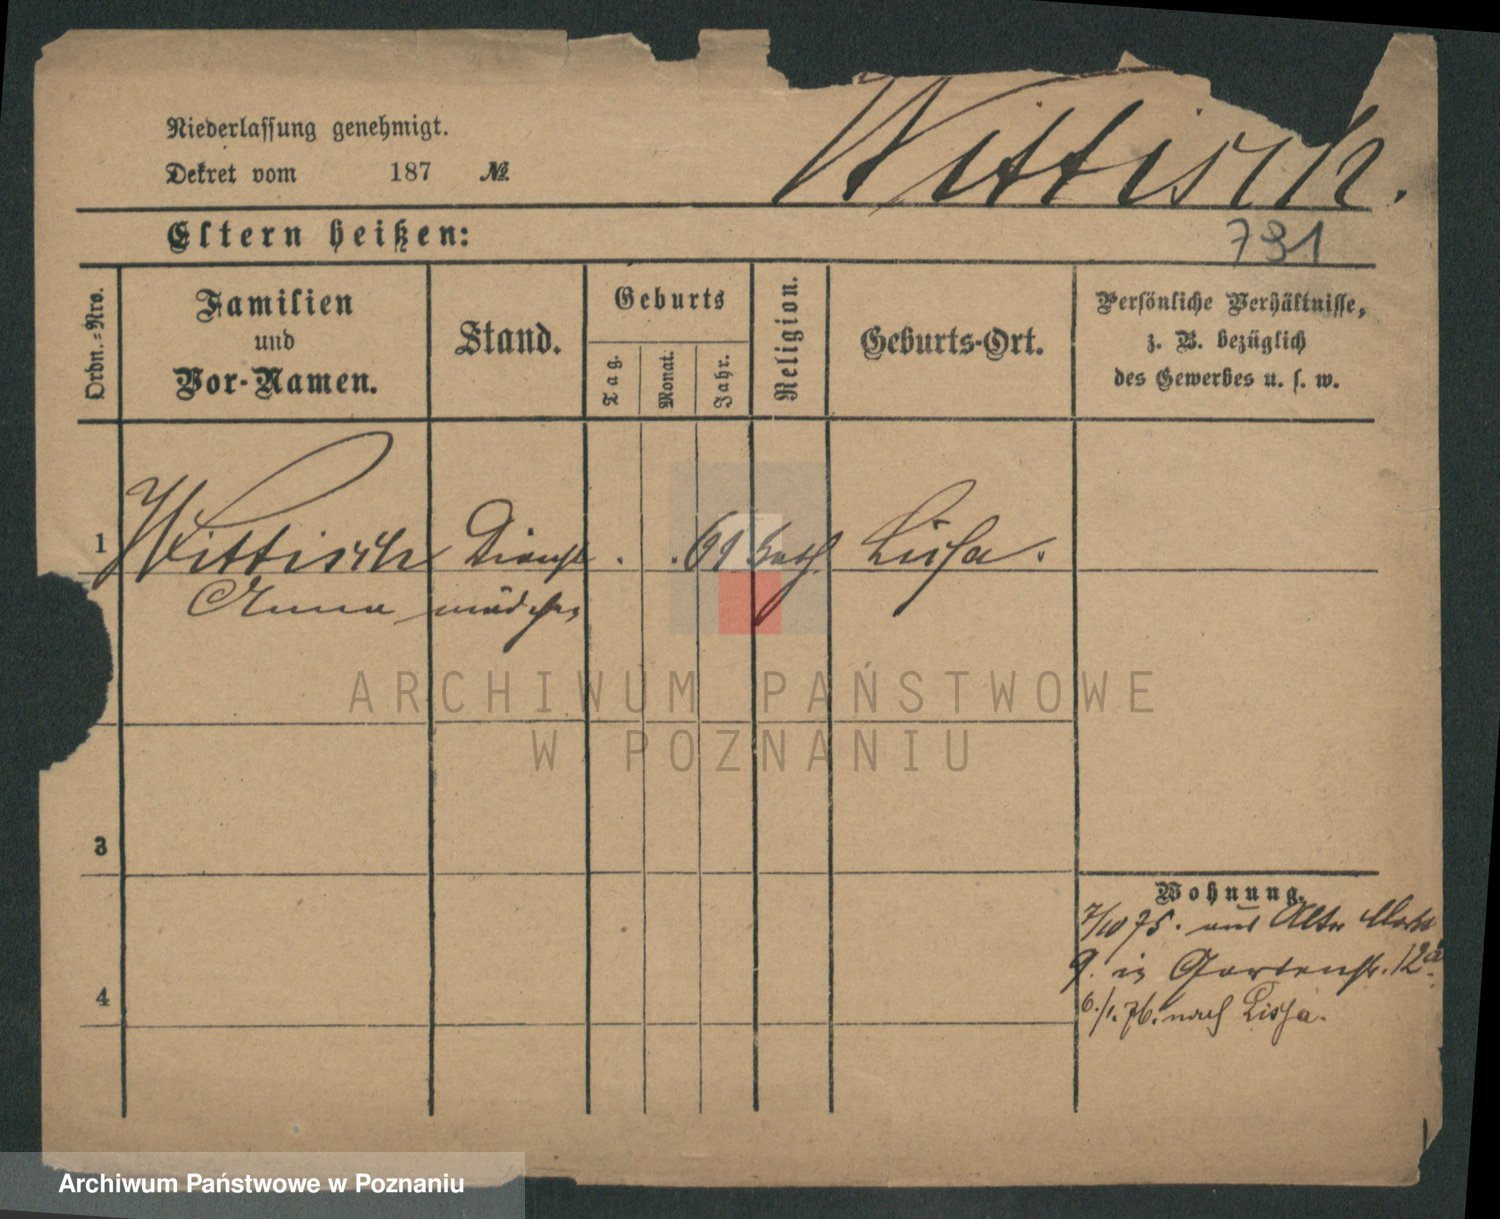 Niederlassung genehmigt.
Wittisch.
Dekret vom 187 №
Eltern heißen:
791
Ordn.-Nro.
Familien
und
Vor-Namen.
Stand.
Geburts
Tag.
Monat.
Jahr.
Religion.
Geburts-Ort.
Persönliche Verhältnisse,
z. B. bezüglich
des Gewerbes u. s. w.
1 Wittisch Dienst . . kath. Lissa.
Anna mädchen
ARCHIWUM PAŃSTWOWE
W POZNANIU
3
Wohnung.
7/10 75. aus Alte
9. in Gartenstr. 12a.
4
6./1. 76. nach Lissa.
Archiwum Państwowe w Poznaniu